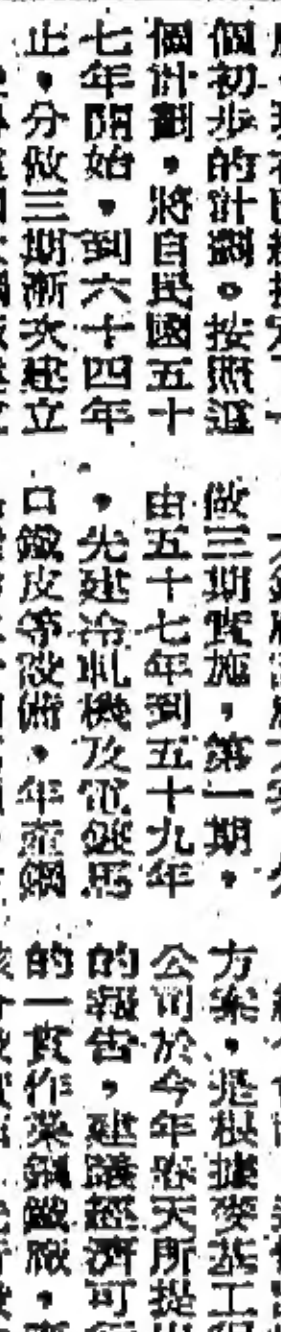 個初步的計劃。按照這
個計劃，將自民國五十
七年開始，到六十四年
止，分做三期漸次建立
做三期實施，第一期，
由五十七年到五十九年
，先建冷軋機及電鍍馬
口鐵皮等設備，年產鋼
方案，是根據麥基工
公司於今年春天所提
的報告，建議經濟可
的一貫作業鋼鐵廠，